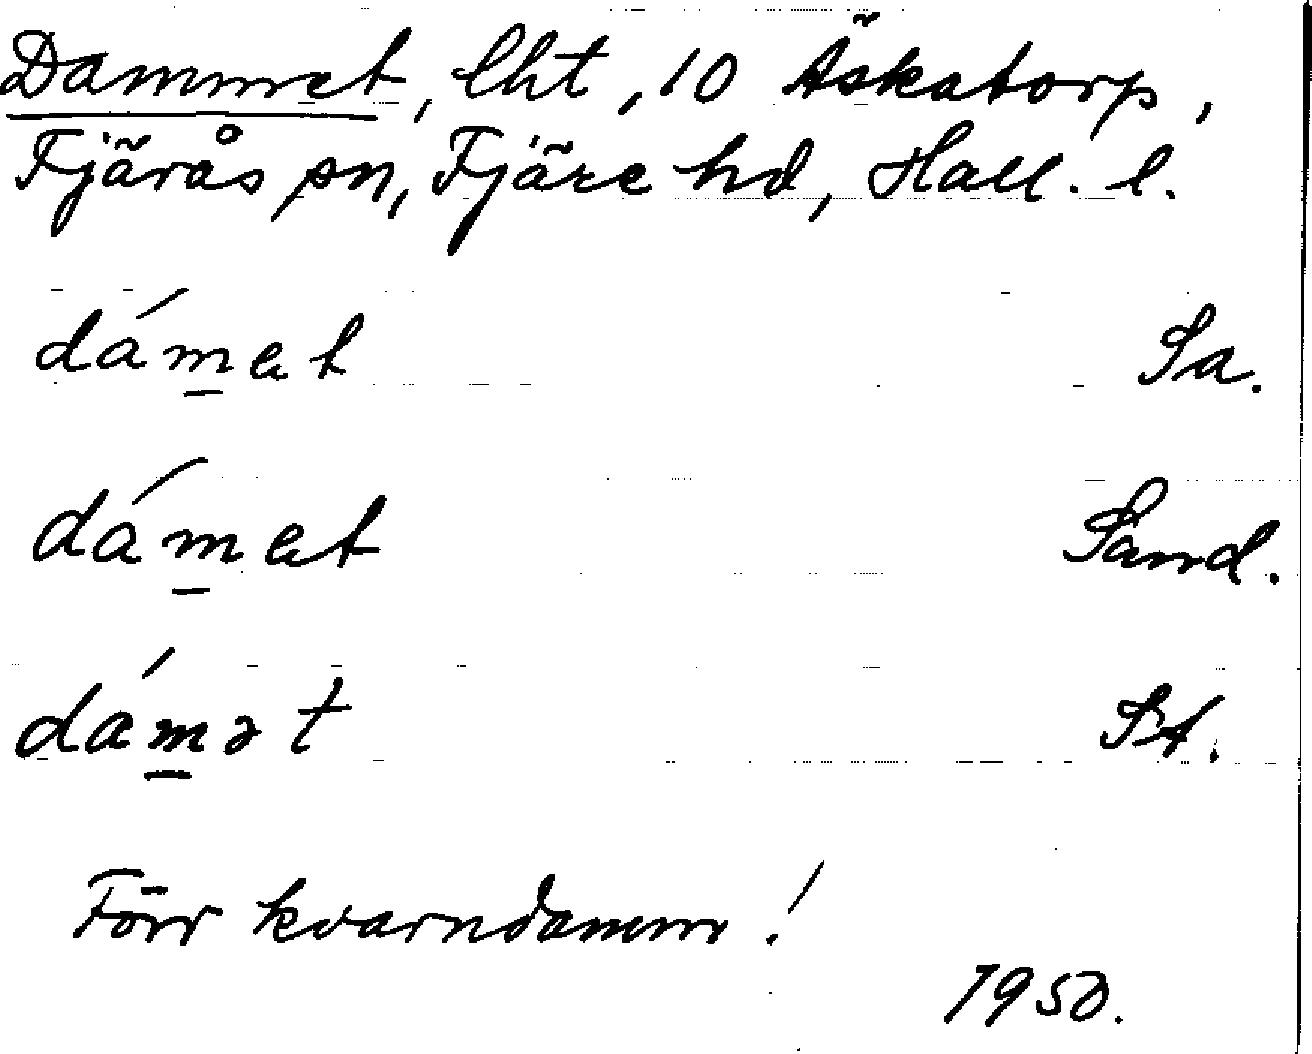 Dammet, lht, 10 Äskatorp,
Fjärås sn, Fjäre hd, Hall. l.
dám̲et Sa.
dám̲et Sand.
dám̲ət St.
Förr kvarndamm!
1950.